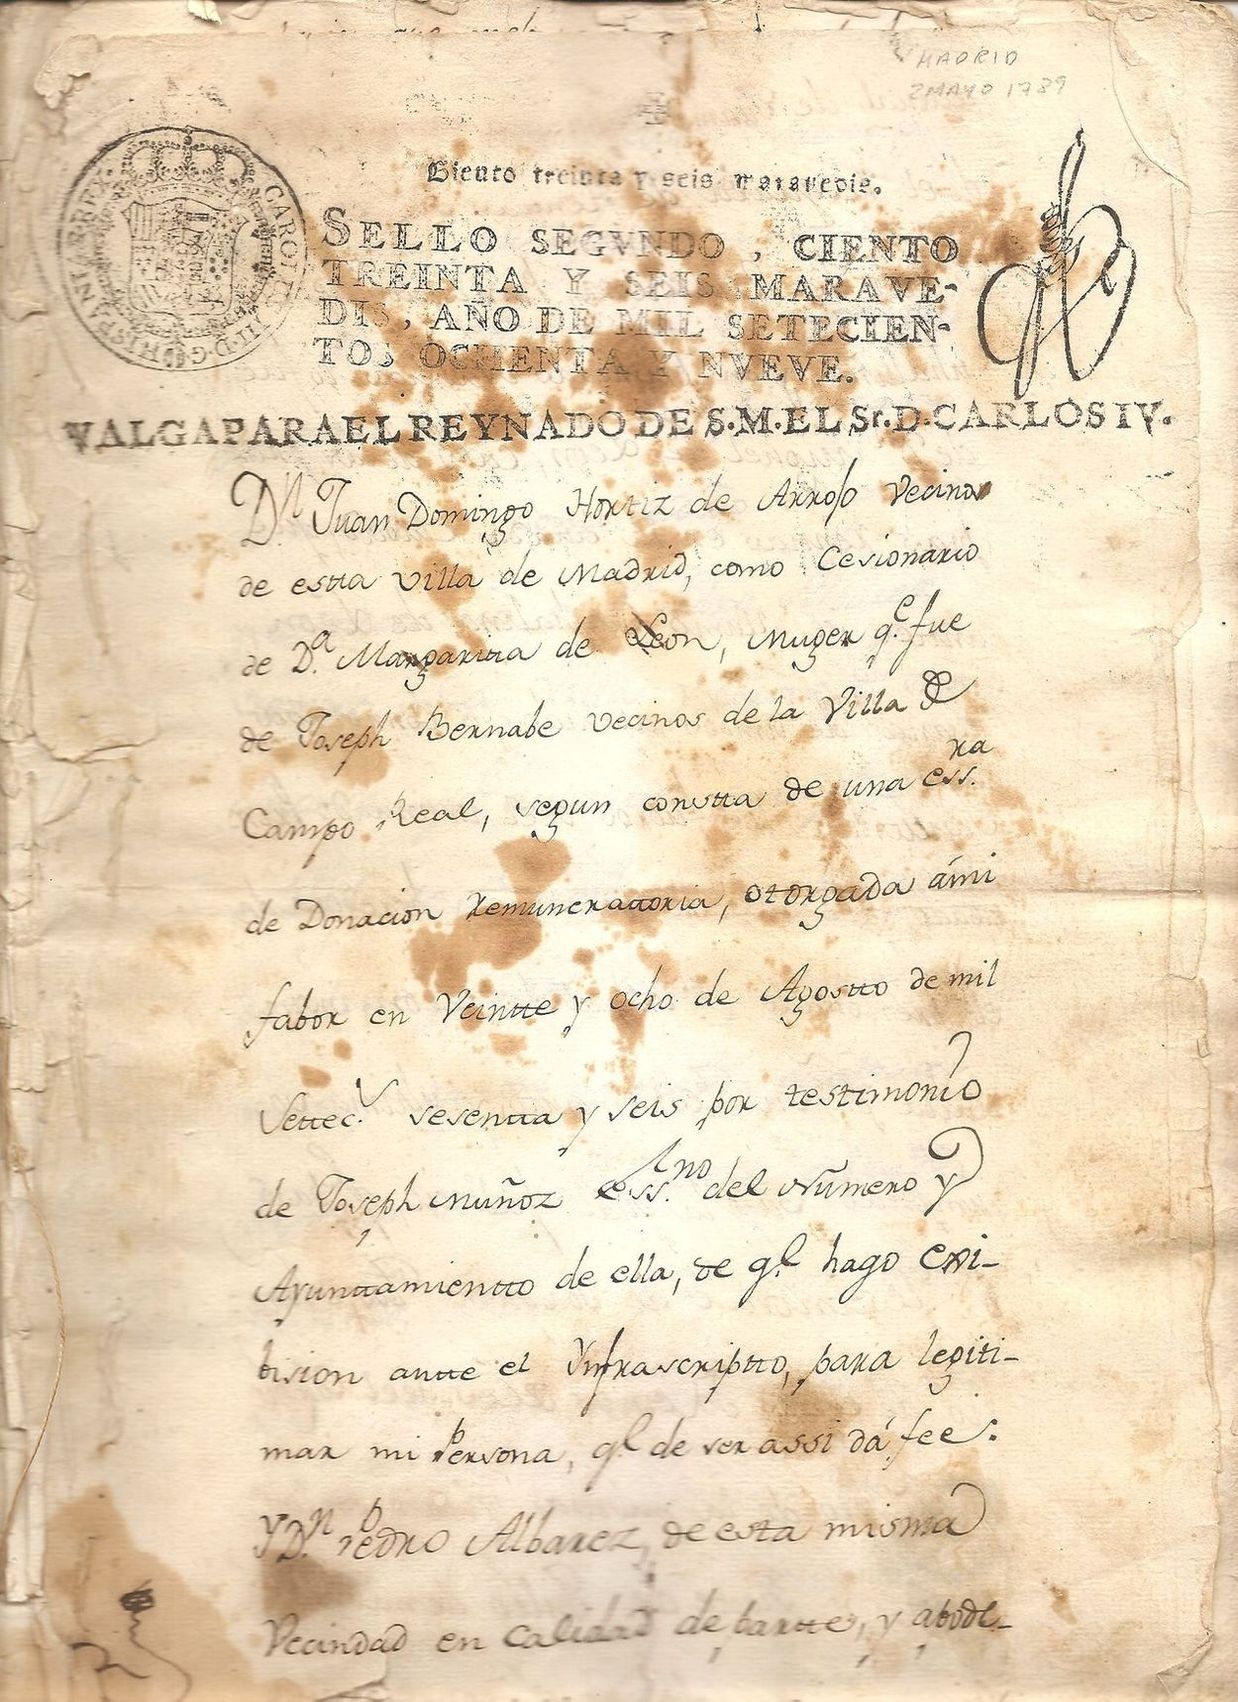 MADRID
2 MAYO 1789
Ciento treinta y seis maravedis.
HISPANIARREX CAROL III D G
SELLO SEGVNDO, CIENTO
TREINTA Y SEIS MARAVE-
DIS, AÑO DE MIL SETECIEN-
TOS OCHENTA Y NVEVE.
VALGA PARA EL REYNADO DE S.M. EL Sr. D. CARLOS IV.
Dn. Juan Domingo Hortiz de Arroyo Vecino
de estta villa de Madrid, como Cesionario
de Da. Margaritta de Leon, Muger qe. fue
de Joseph Bernabe vecinos de la Villa de
Campo Real, segun constta de una essra.
de Donacion remunerattoria, otorgada á mi
fabor en Veintte y ocho de Agostto de mil
Settecs. sesentta y seis por testimonio
de Joseph Muñoz essno. del Número y
Ayunttamientto de ella, de ql. hago exi-
bision antte el Ynfrascriptto, para legiti-
mar mi Persona, ql. de ser assi dá fee:
Y Dn. Pedro Albarez, de esta misma
Vecindad en Calidad de partte, y apode-